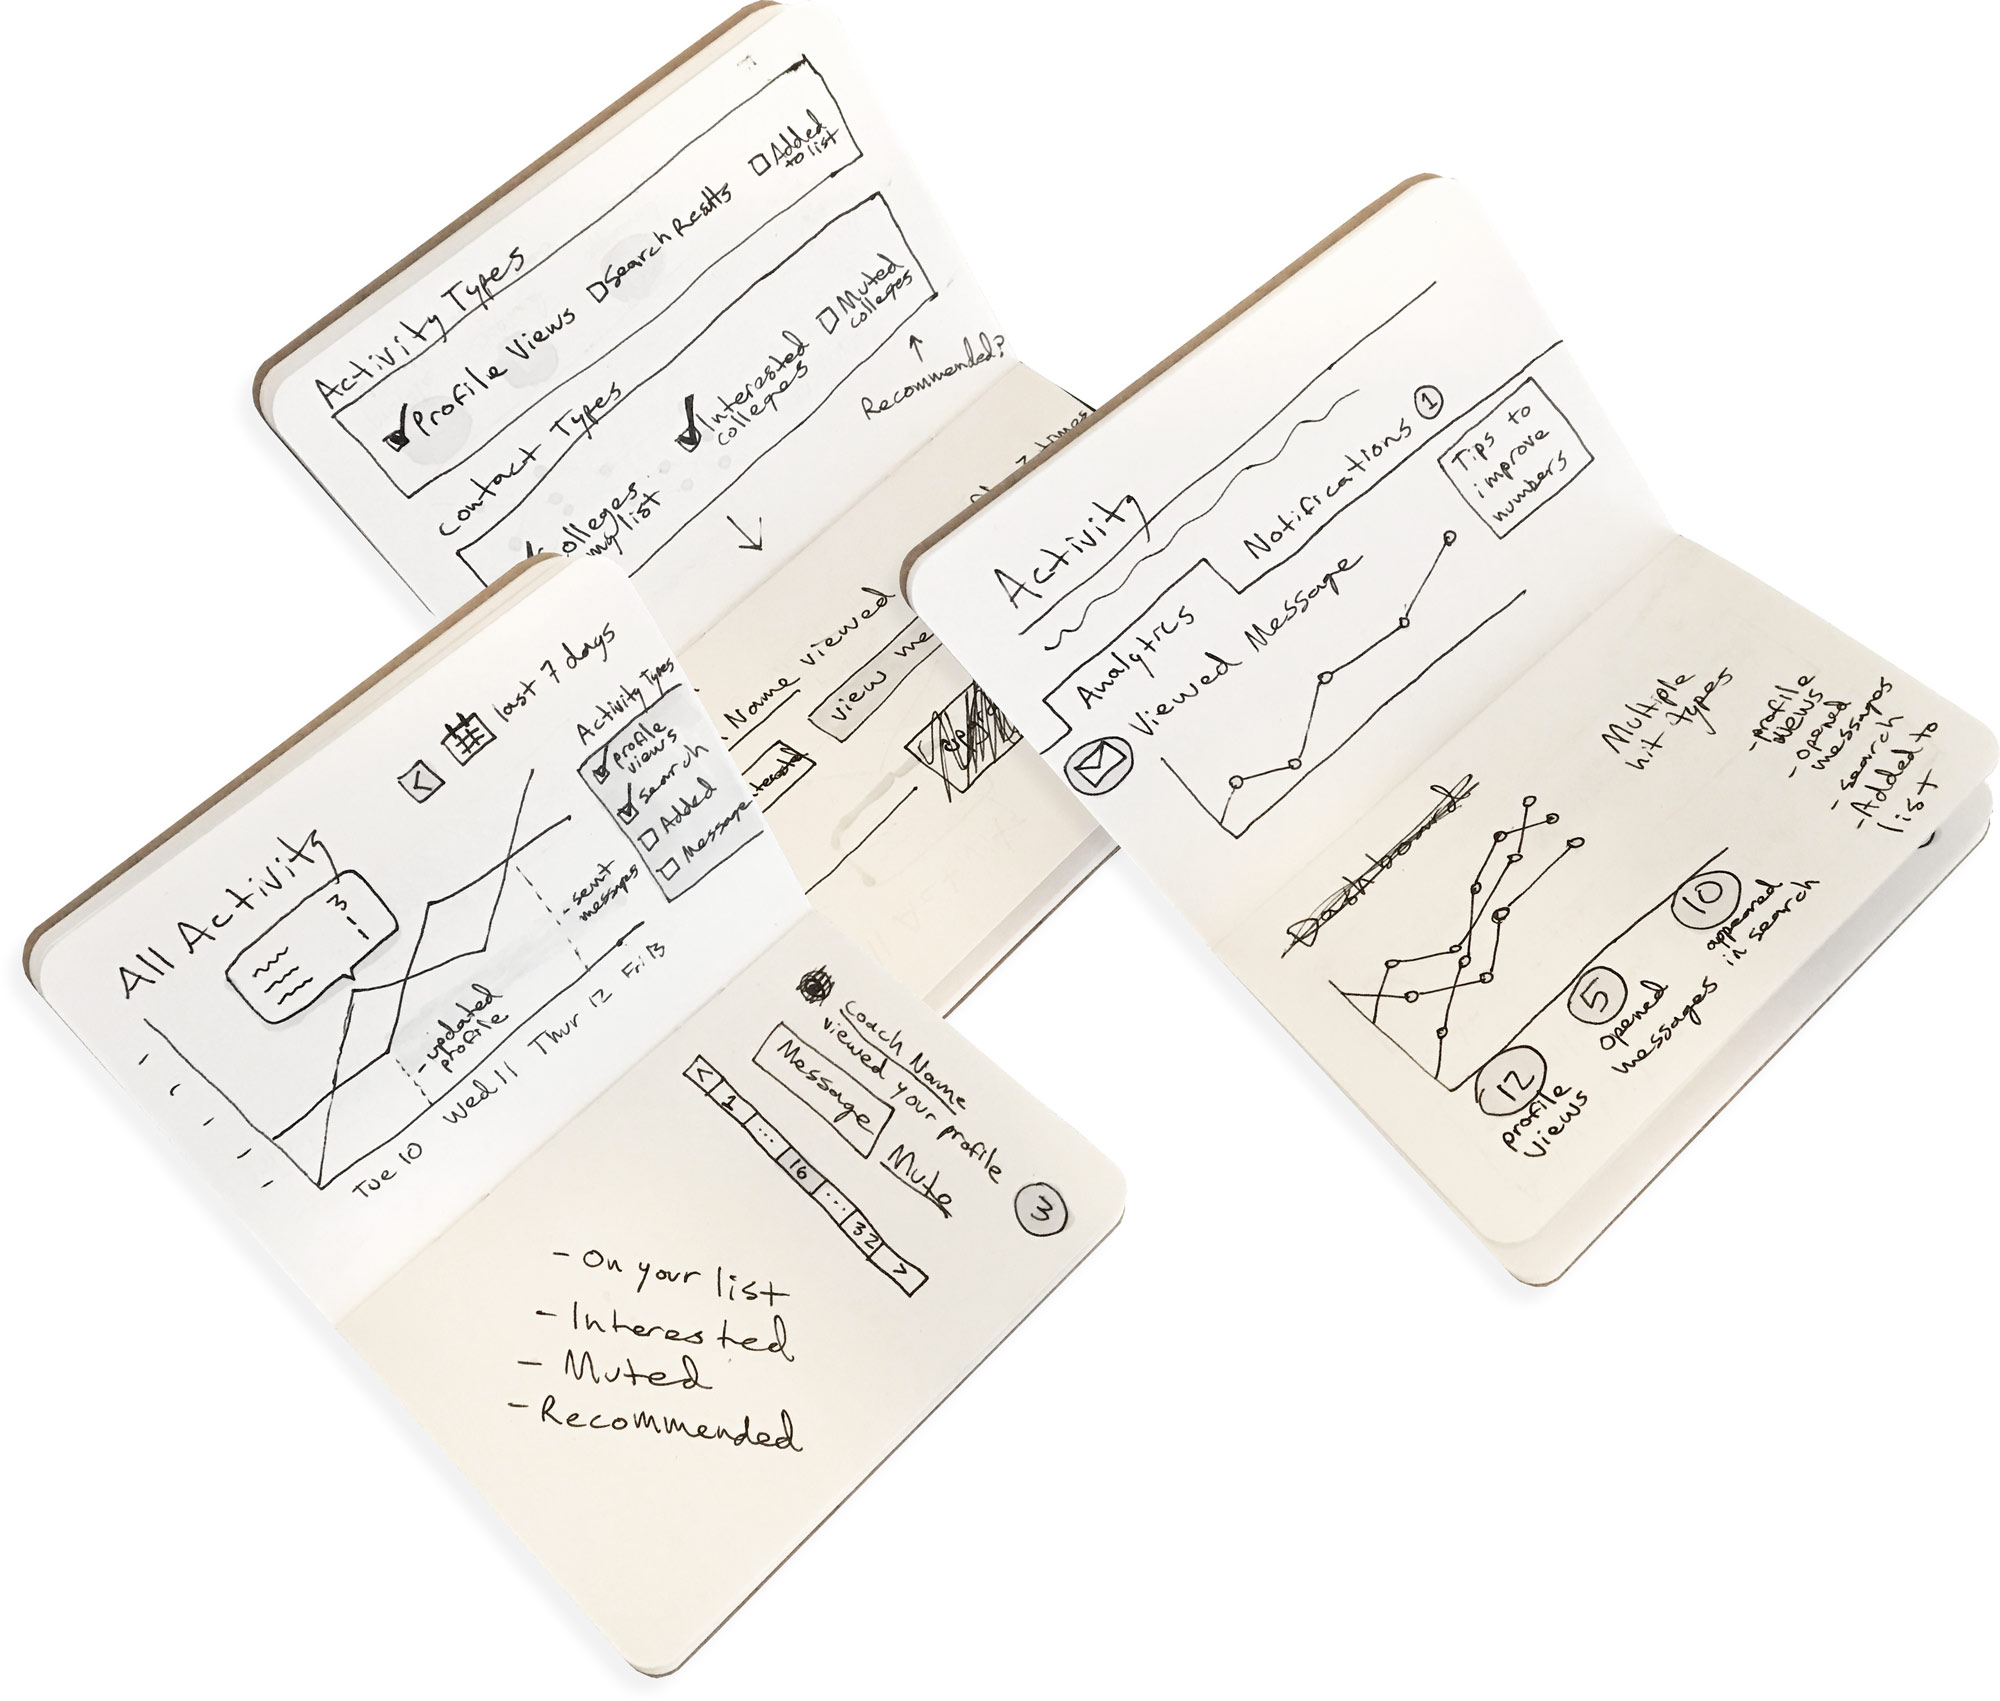 Activity Types
Profile Views
Search Results
Added
to list
Contact Types
Interested
colleges
Muted
colleges
Recommended?
Name viewed
view me
Activity
Analytics
Notifications 1
Tips to
improve
numbers
Viewed Message
Multiple
hit types
- profile
views
- opened
messages
- search
- Added to
list
Dashboard
12
profile
views
5
opened
messages
10
appeared
in search
All Activity
<
last 7 days
Activity Types
profile
views
search
Added
Message
3
1
- updated
profile
- sent
messages
Tue 10
Wed 11
Thur 12
Fri 13
Coach Name
viewed your profile
Message
Mute
3
< 1 ... 16 ... 32 >
- On your list
- Interested
- Muted
- Recommended